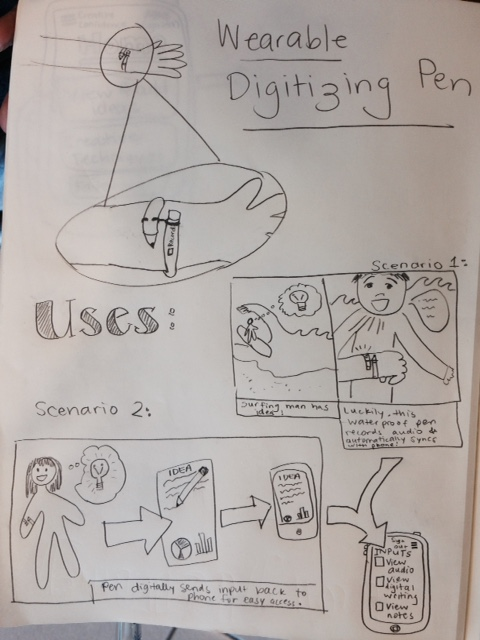 Wearable
Digitizing Pen
Record
Uses:
Scenario 1:
Surfing man has
idea!
Luckily, this
waterproof pen
records audio &
automatically syncs
with phone!
Scenario 2:
IDEA
IDEA
Pen digitally sends input back to
phone for easy access.
Sign
out
INPUTS
View
audio
View
digital
writing
View
notes